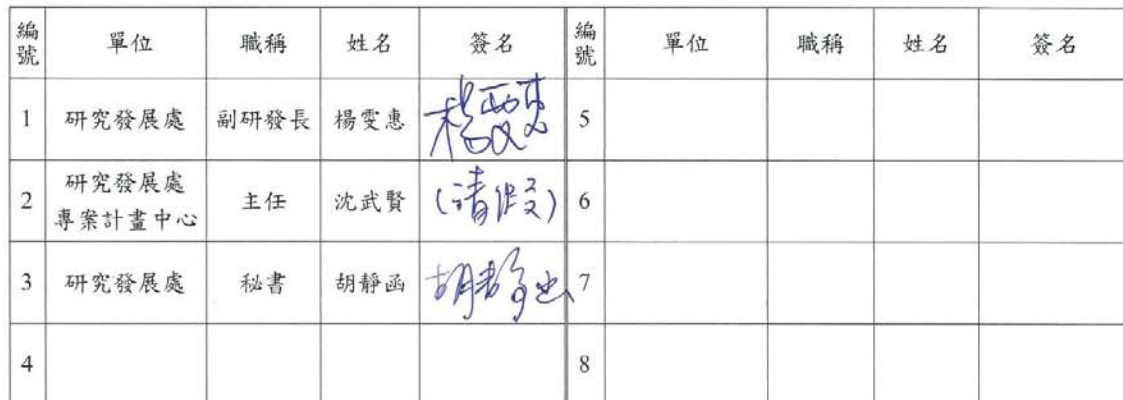 編號 單位 職稱 姓名 簽名 編號 單位 職稱 姓名 簽名
1 研究發展處 副研發長 楊雯惠 楊雯惠 5
2 研究發展處 專案計畫中心 主任 沈武賢 (請假) 6
3 研究發展處 秘書 胡靜函 胡靜函 7
4 8